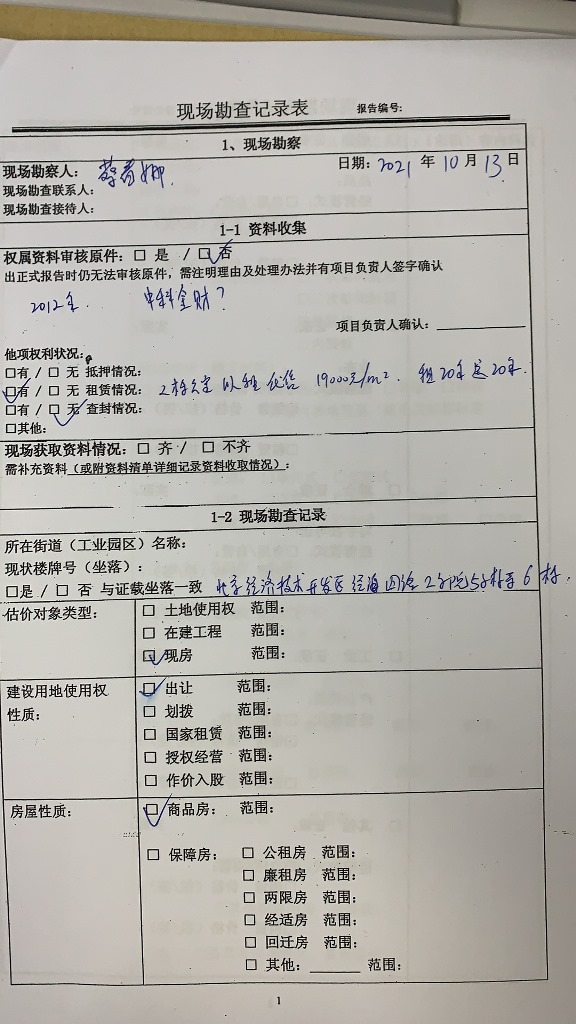 现场勘查记录表 报告编号:
1、现场勘察
现场勘察人: 日期: 2021 年 10 月 13 日
现场勘查联系人:
现场勘查接待人:
1-1 资料收集
权属资料审核原件: □ 是 / □ 否
出正式报告时仍无法审核原件, 需注明理由及处理办法并有项目负责人签字确认
2012年. 中科金财?
项目负责人确认: ________
他项权利状况:
□有 / □ 无 抵押情况:
□有 / □ 无 租赁情况: 以租代售 19000元/m². 租20年送20年.
□有 / □ 无 查封情况:
□其他:
现场获取资料情况: □ 齐 / □ 不齐
需补充资料(或附资料清单详细记录资料收取情况):
1-2 现场勘查记录
所在街道(工业园区)名称:
现状楼牌号(坐落):
□是 / □ 否 与证载坐落一致 北京经济技术开发区经海四路2号院5号楼 6
估价对象类型: □ 土地使用权 范围:
□ 在建工程 范围:
□ 现房 范围:
建设用地使用权性质: □ 出让 范围:
□ 划拨 范围:
□ 国家租赁 范围:
□ 授权经营 范围:
□ 作价入股 范围:
房屋性质: □ 商品房: 范围:
□ 保障房: □ 公租房 范围:
□ 廉租房 范围:
□ 两限房 范围:
□ 经适房 范围:
□ 回迁房 范围:
□ 其他: ______ 范围:
1